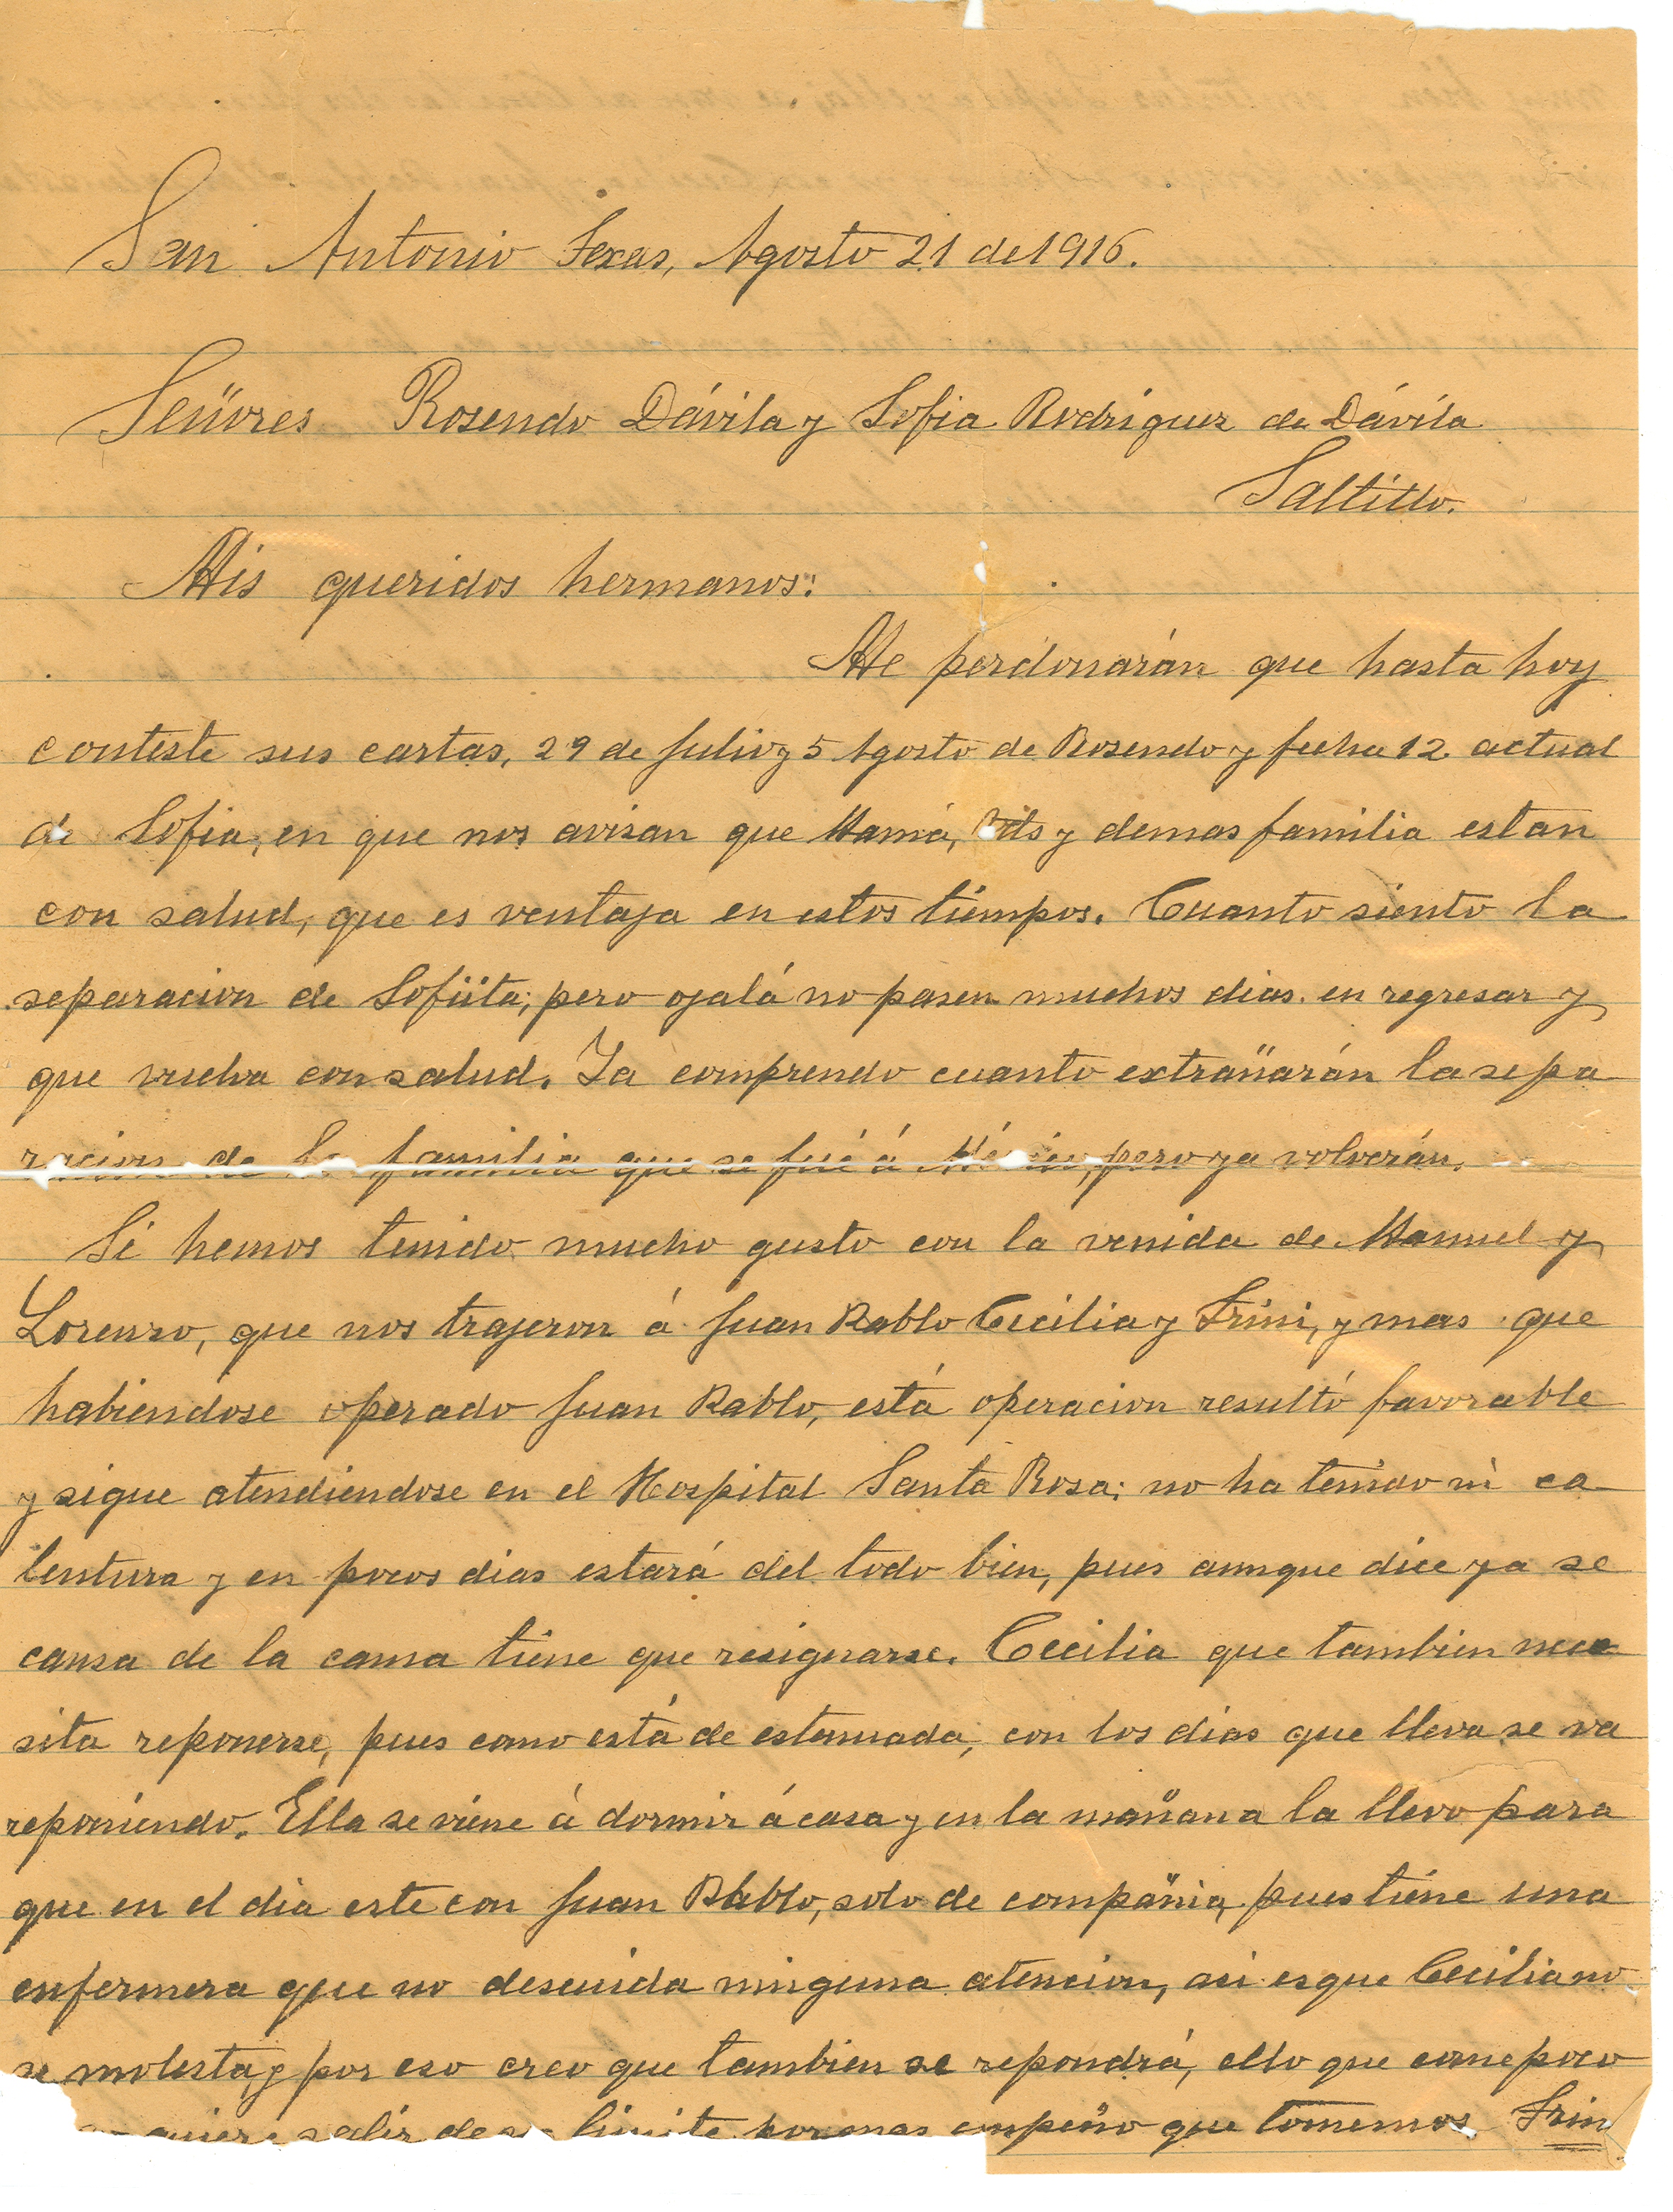 San Antonio Texas, Agosto 21 de 1916.
Señores Rosendo Dávila y Sofia Rodriguez de Dávila
Saltillo.
Mis queridos hermanos:
Me perdonarán que hasta hoy
conteste sus cartas, 29 de Julio y 5 Agosto de Rosendo y fecha 12 actual
de Sofia, en que nos avisan que Mamá, Uds y demas familia estan
con salud, que es ventaja en estos tiempos. Cuanto siento la
separacion de Sofiita; pero ojalá no pasen muchos dias en regresar y
que vuelva con salud. Ya comprendo cuanto extrañarán la sepa
racion de la familia que se fué á México, pero ya volverán.
Si hemos tenido mucho gusto con la venida de Manuel y
Lorenzo, que nos trajeron á Juan Pablo Cecilia y Trini, y mas que
habiendose operado Juan Pablo, está operacion resultó favorable
y sigue atendiendose en el Hospital Santa Rosa; no ha tenido ni ca
lentura y en pocos dias estará del todo bien, pues aunque dice ya se
cansa de la cama tiene que resignarse. Cecilia que tambien nece
sita reponerse, pues como está de estenuada, con los dias que lleva se va
reponiendo. Ella se viene á dormir á casa y en la mañana la llevo para
que en el dia este con Juan Pablo, solo de compañia, pues tiene una
enfermera que no descuida ninguna atencion, asi es que Cecilia no
se molesta y por eso creo que tambien se repondrá, ello que come poco
quiere salir de su limite por mas empeño que tomemos. Trini